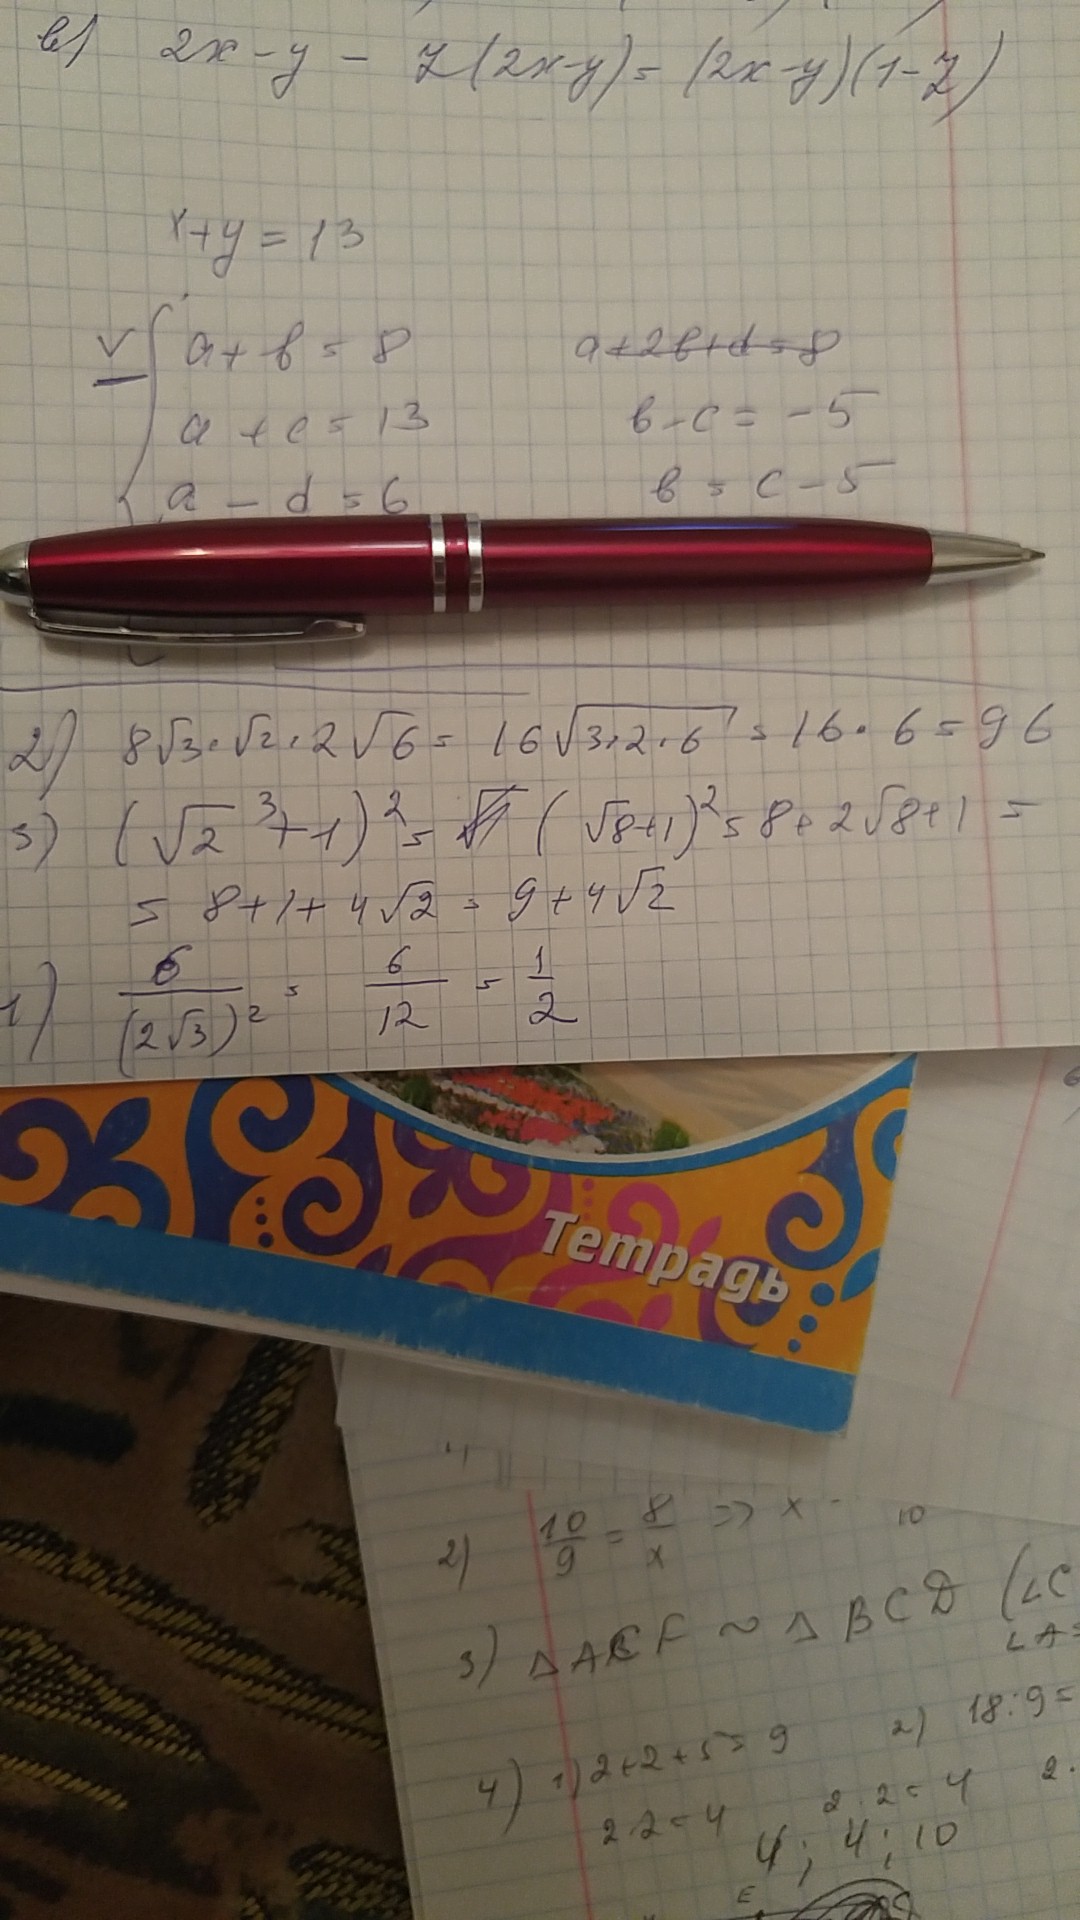 в) 2x - y - z(2x-y) = (2x-y)(1-z)
x+y = 13
V a + b = 8 a+2b+d=8
a + c = 13 b - c = -5
a - d = 6 b = c - 5
2) 8√3·√2·2√6 = 16√3·2·6 = 16·6=96
3) (√2³+1)² = (√8+1)² = 8+2√8+1 =
= 8+1+4√2 = 9+4√2
1) 6/(2√3)² = 6/12 = 1/2
Тетрадь
2) 10/9 = 8/x => x - 10
3) ΔACF ~ ΔBCD (∠C
∠A=
4) 1) 2+2+5=9 2) 18:9=
2·2=4 2·2=4 2·
4; 4; 10
E